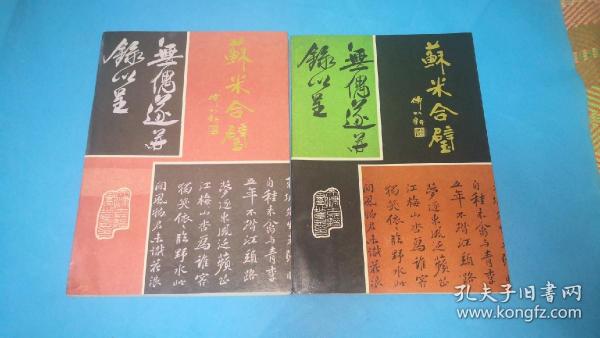 蘇米合璧
無偶遂并
錄以呈
自種来禽与青李
五年不踏江頭路
夢逐東風泛蘋芷
江梅山杏為誰容
獨笑依依臨野水此
間風物君未識花浪
蘇米合璧
無偶遂并
錄以呈
自種来禽与青李
五年不踏江頭路
夢逐東風泛蘋芷
江梅山杏為誰容
獨笑依依臨野水此
間風物君未識花浪
孔夫子旧书网
www.kongfz.com